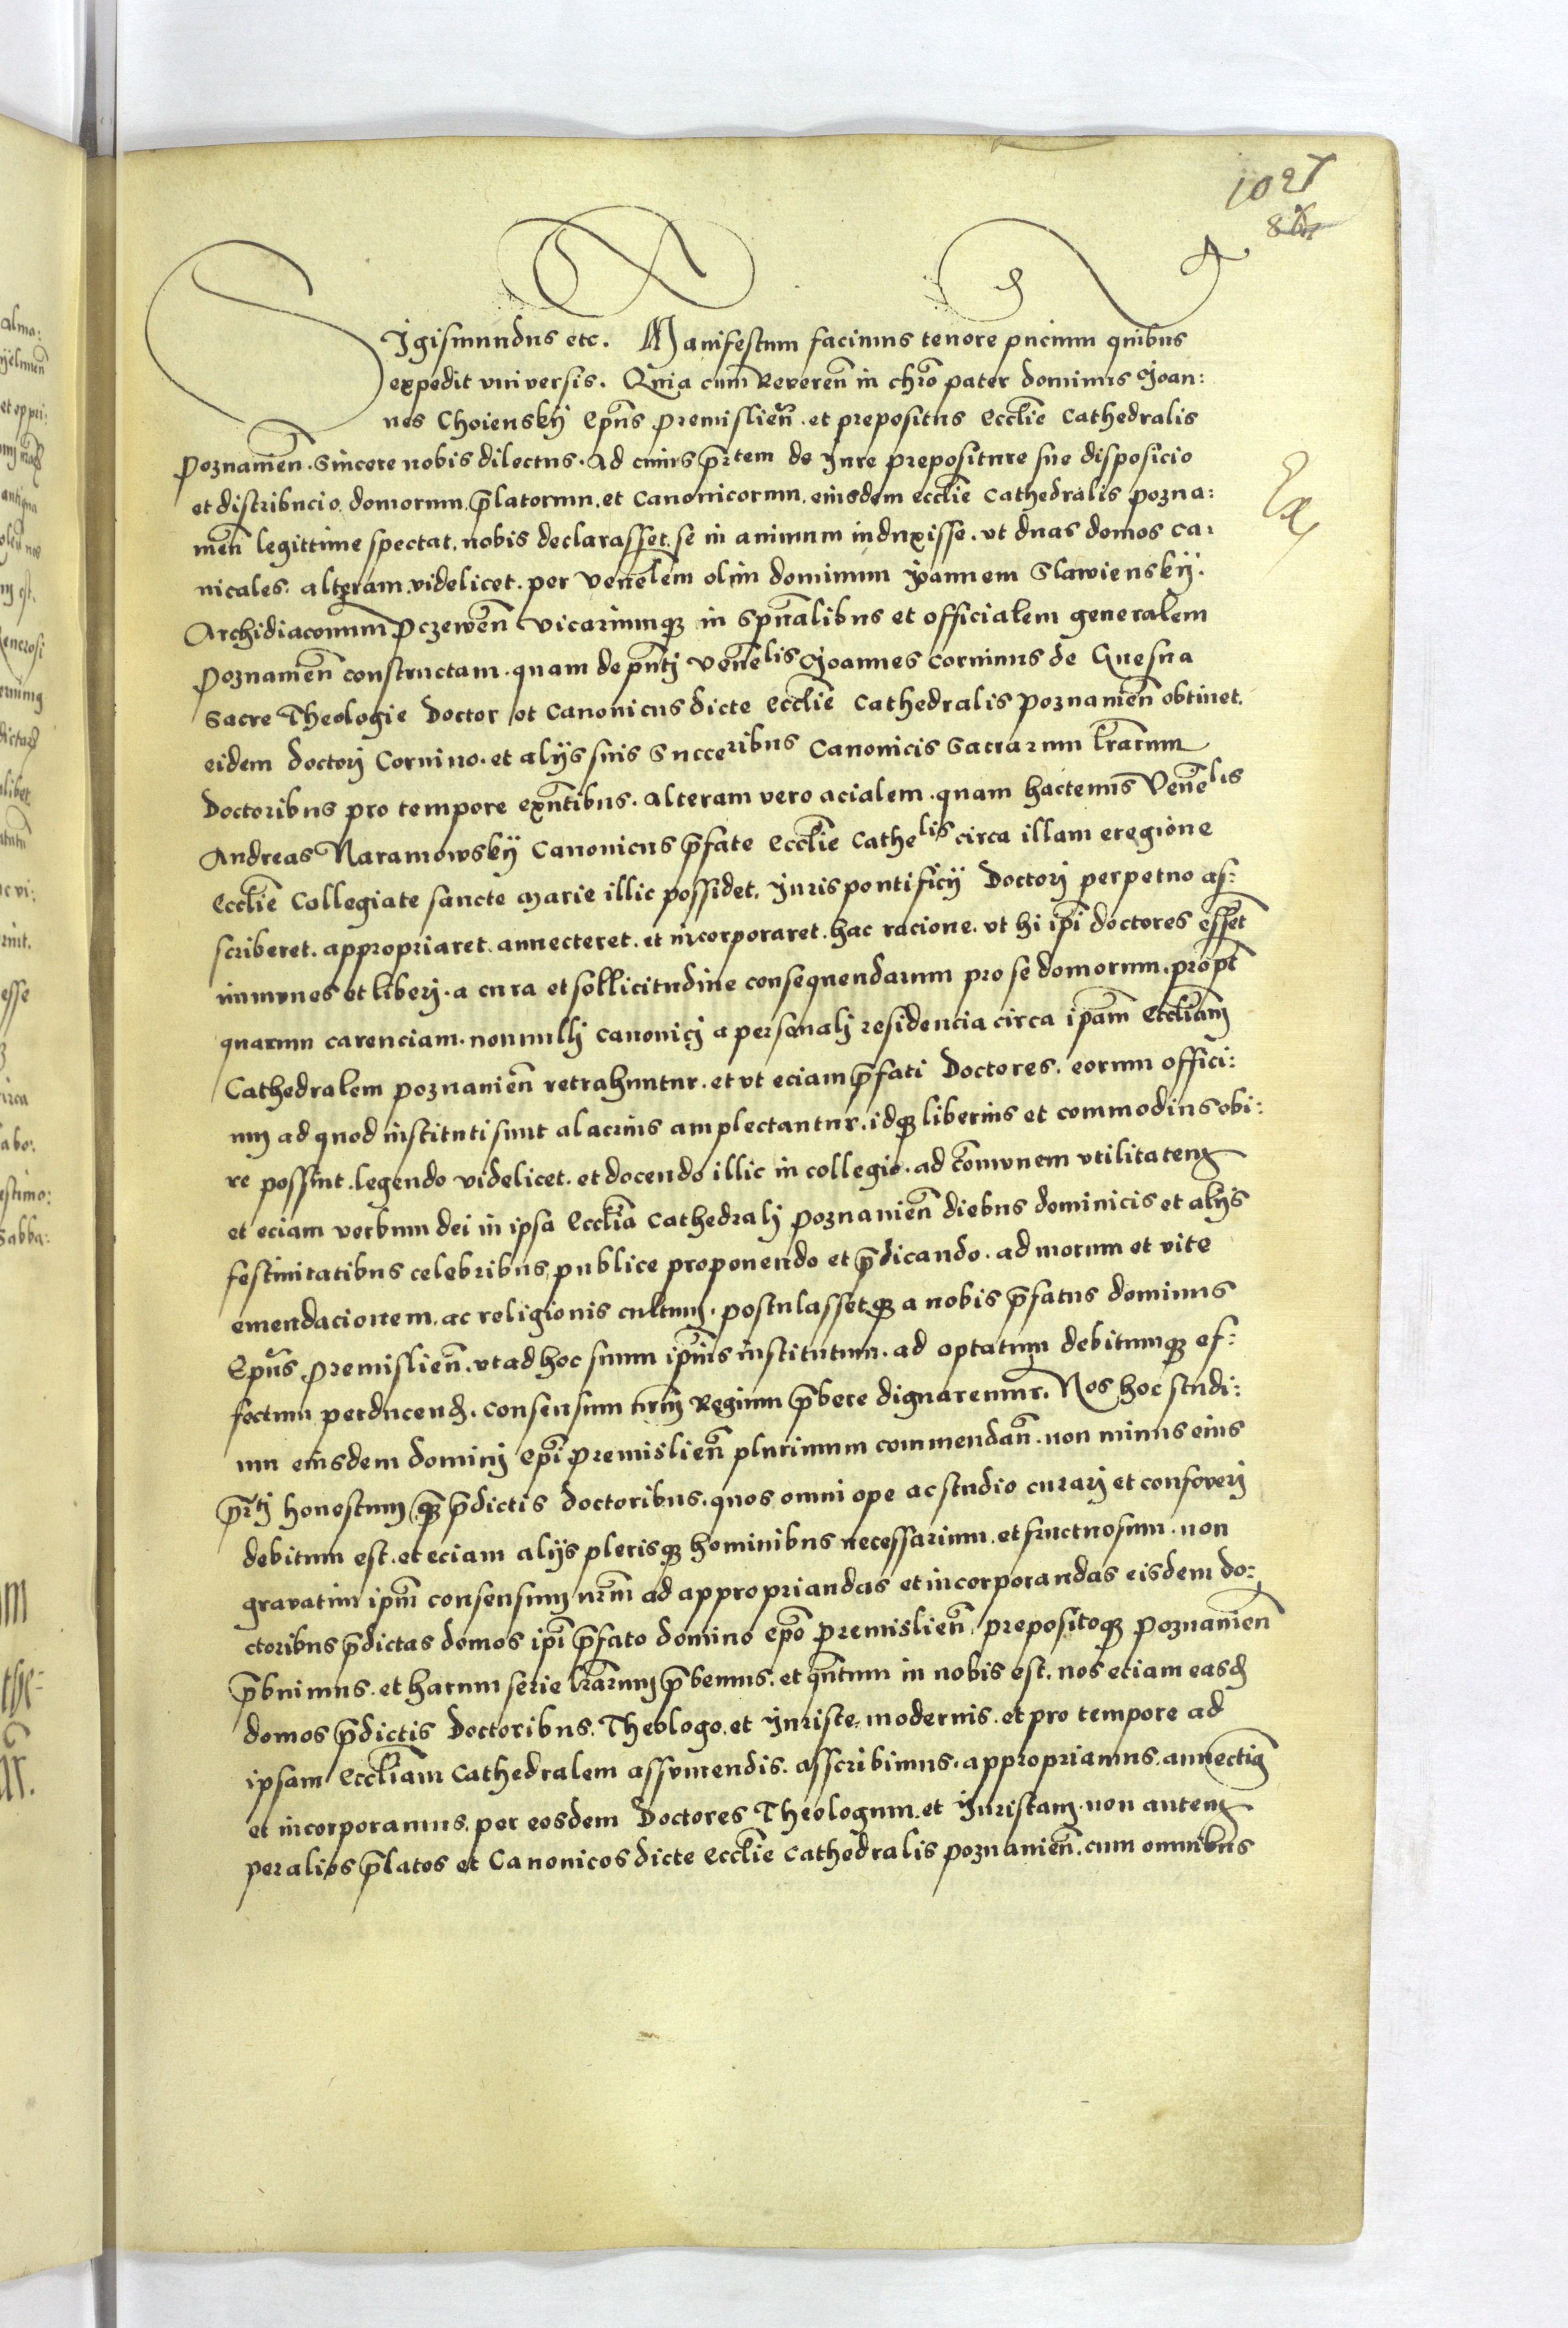 1027
Sigismundus etc. Manifestum facimus tenore pñcium quibus
expedit vniversis. Quia cum Reveren̄ in chrō pater dominus Joan:
nes Choienskÿ Epūs Premislieñ. et prepositus Ecclīe Cathedralis
Poznanieñ. Sincere nobis dilectus. Ad cuius p̄rtem de Jure prepositure sue disposicio
et distribucio domorum p̄latorum. et Canonicorum. eiusdem ecclīe Cathedralis pozna:
nieñ legittime spectat. nobis declarasset. se in animum induxisse. vt duas domos ca:
nicales. alteram. videlicet. per Venēlem olim dominum Joannem Slawienskÿ.
Archidiaconum Pczeweñ Vicariumqꝫ in Spūalibus et officialem generalem
Poznanieñ constructam. quam de pn̄tj Venēlis Joannes Corninus de Gnesna
Sacre Theologie Doctor et Canonicus dicte Ecclīe Cathedralis Poznanieñ obtinet.
eidem Doctorj Cornino. et alÿs suis Succeribus Canonicis Sacrarum lrārum
Doctoribus pro tempore exn̄tibus. Alteram vero acialem. quam hactenus Venēlis
Andreas Naramowskÿ Canonicus p̄fate Ecclīe Cathelis circa illam eregione
Ecclīe Collegiate sancte Marie illic possidet. Juris pontificÿ Doctorj perpetuo as:
scriberet. appropriaret. annecteret. et incorporaret. hac racione. vt hi ip̄i doctores essēt
immunes et liberj. a cura et sollicitudine consequendarum pro se domorum. propt̄
quarum carenciam. nonnullj canonicj a personalj residencia circa ip̄am Ecclīam
Cathedralem poznanieñ retrahuntur. et vt eciam p̄fati Doctores. eorum offici:
um ad quod instituti sunt alacrius amplectantur. idqꝫ liberius et commodius obi:
re possint. legendo videlicet. et docendo illic in collegio. ad cōmunem vtilitatem
et eciam verbum dei in ipsa Ecclīa Cathedralj Poznanieñ diebus dominicis et alÿs
festiuitatibus celebribus publice proponendo et p̄dicando. ad morum et vite
emendacionem. ac religionis cultum. postulassetqꝫ a nobis p̄fatus dominus
Epūs Premislieñ. vt ad hoc suum ip̄ius institutum. ad optatum debitumqꝫ ef:
fectum perducend̄. consensum nrm̄ Regium p̄bere dignaremur. Nos hoc studi:
um eiusdem dominj Epī Premislieñ plurimum commendan̄. non minus eius
p̄rtj honestum qꝫ p̄dictis Doctoribus. quos omni ope ac studio curarj et confoverj
debitum est. et eciam alÿs plerisqꝫ hominibus necessarium. et fructuosum. non
gravatim ip̄m consensum nrm̄ ad appropriandas et incorporandas eisdem do:
ctoribus p̄dictas domos ip̄i p̄fato domino epō Premislieñ. prepositoqꝫ Poznanieñ
p̄buimus. et harum serie lrārum p̄bemus. et qn̄tum in nobis est. nos eciam easd̄
domos p̄dictis Doctoribus. Theologo. et Juriste. modernis. et pro tempore ad
ipsam Ecclīam Cathedralem assumendis. asscribimus. appropriamus. annectim̄
et incorporamus. per eosdem Doctores Theologum. et Juristam. non autem
per alios p̄latos et Canonicos dicte Ecclīe Cathedralis poznanieñ. cum omnibus